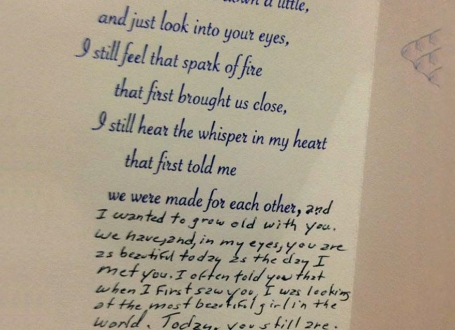 a little,
and just look into your eyes,
I still feel that spark of fire
that first brought us close,
I still hear the whisper in my heart
that first told me
we were made for each other, and
I wanted to grow old with you.
We have, and, in my eyes, you are
as beautiful today as the day I
met you. I often told you that
when I first saw you, I was looking
at the most beautiful girl in the
world. Today, you still are.